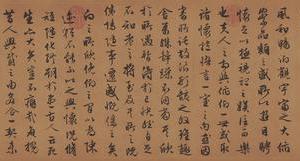 風和暢仰觀宇宙之大俯
察品類之盛所以遊目騁
懷足以極視聽之娛信可樂
也夫人之相與俯仰一世或取
諸懷抱悟言一室之內或因
寄所託放浪形骸之外雖趣
舍萬殊靜躁不同當其欣
於所遇暫得於己快然自足
不知老之將至及其所之既
惓情隨事遷感慨係之矣
向之所欣俛仰之間以為陳
迹猶不能不以之興懷況脩
短隨化終期於盡古人云死
生亦大矣豈不痛哉每攬
昔人興感之由若合一契未